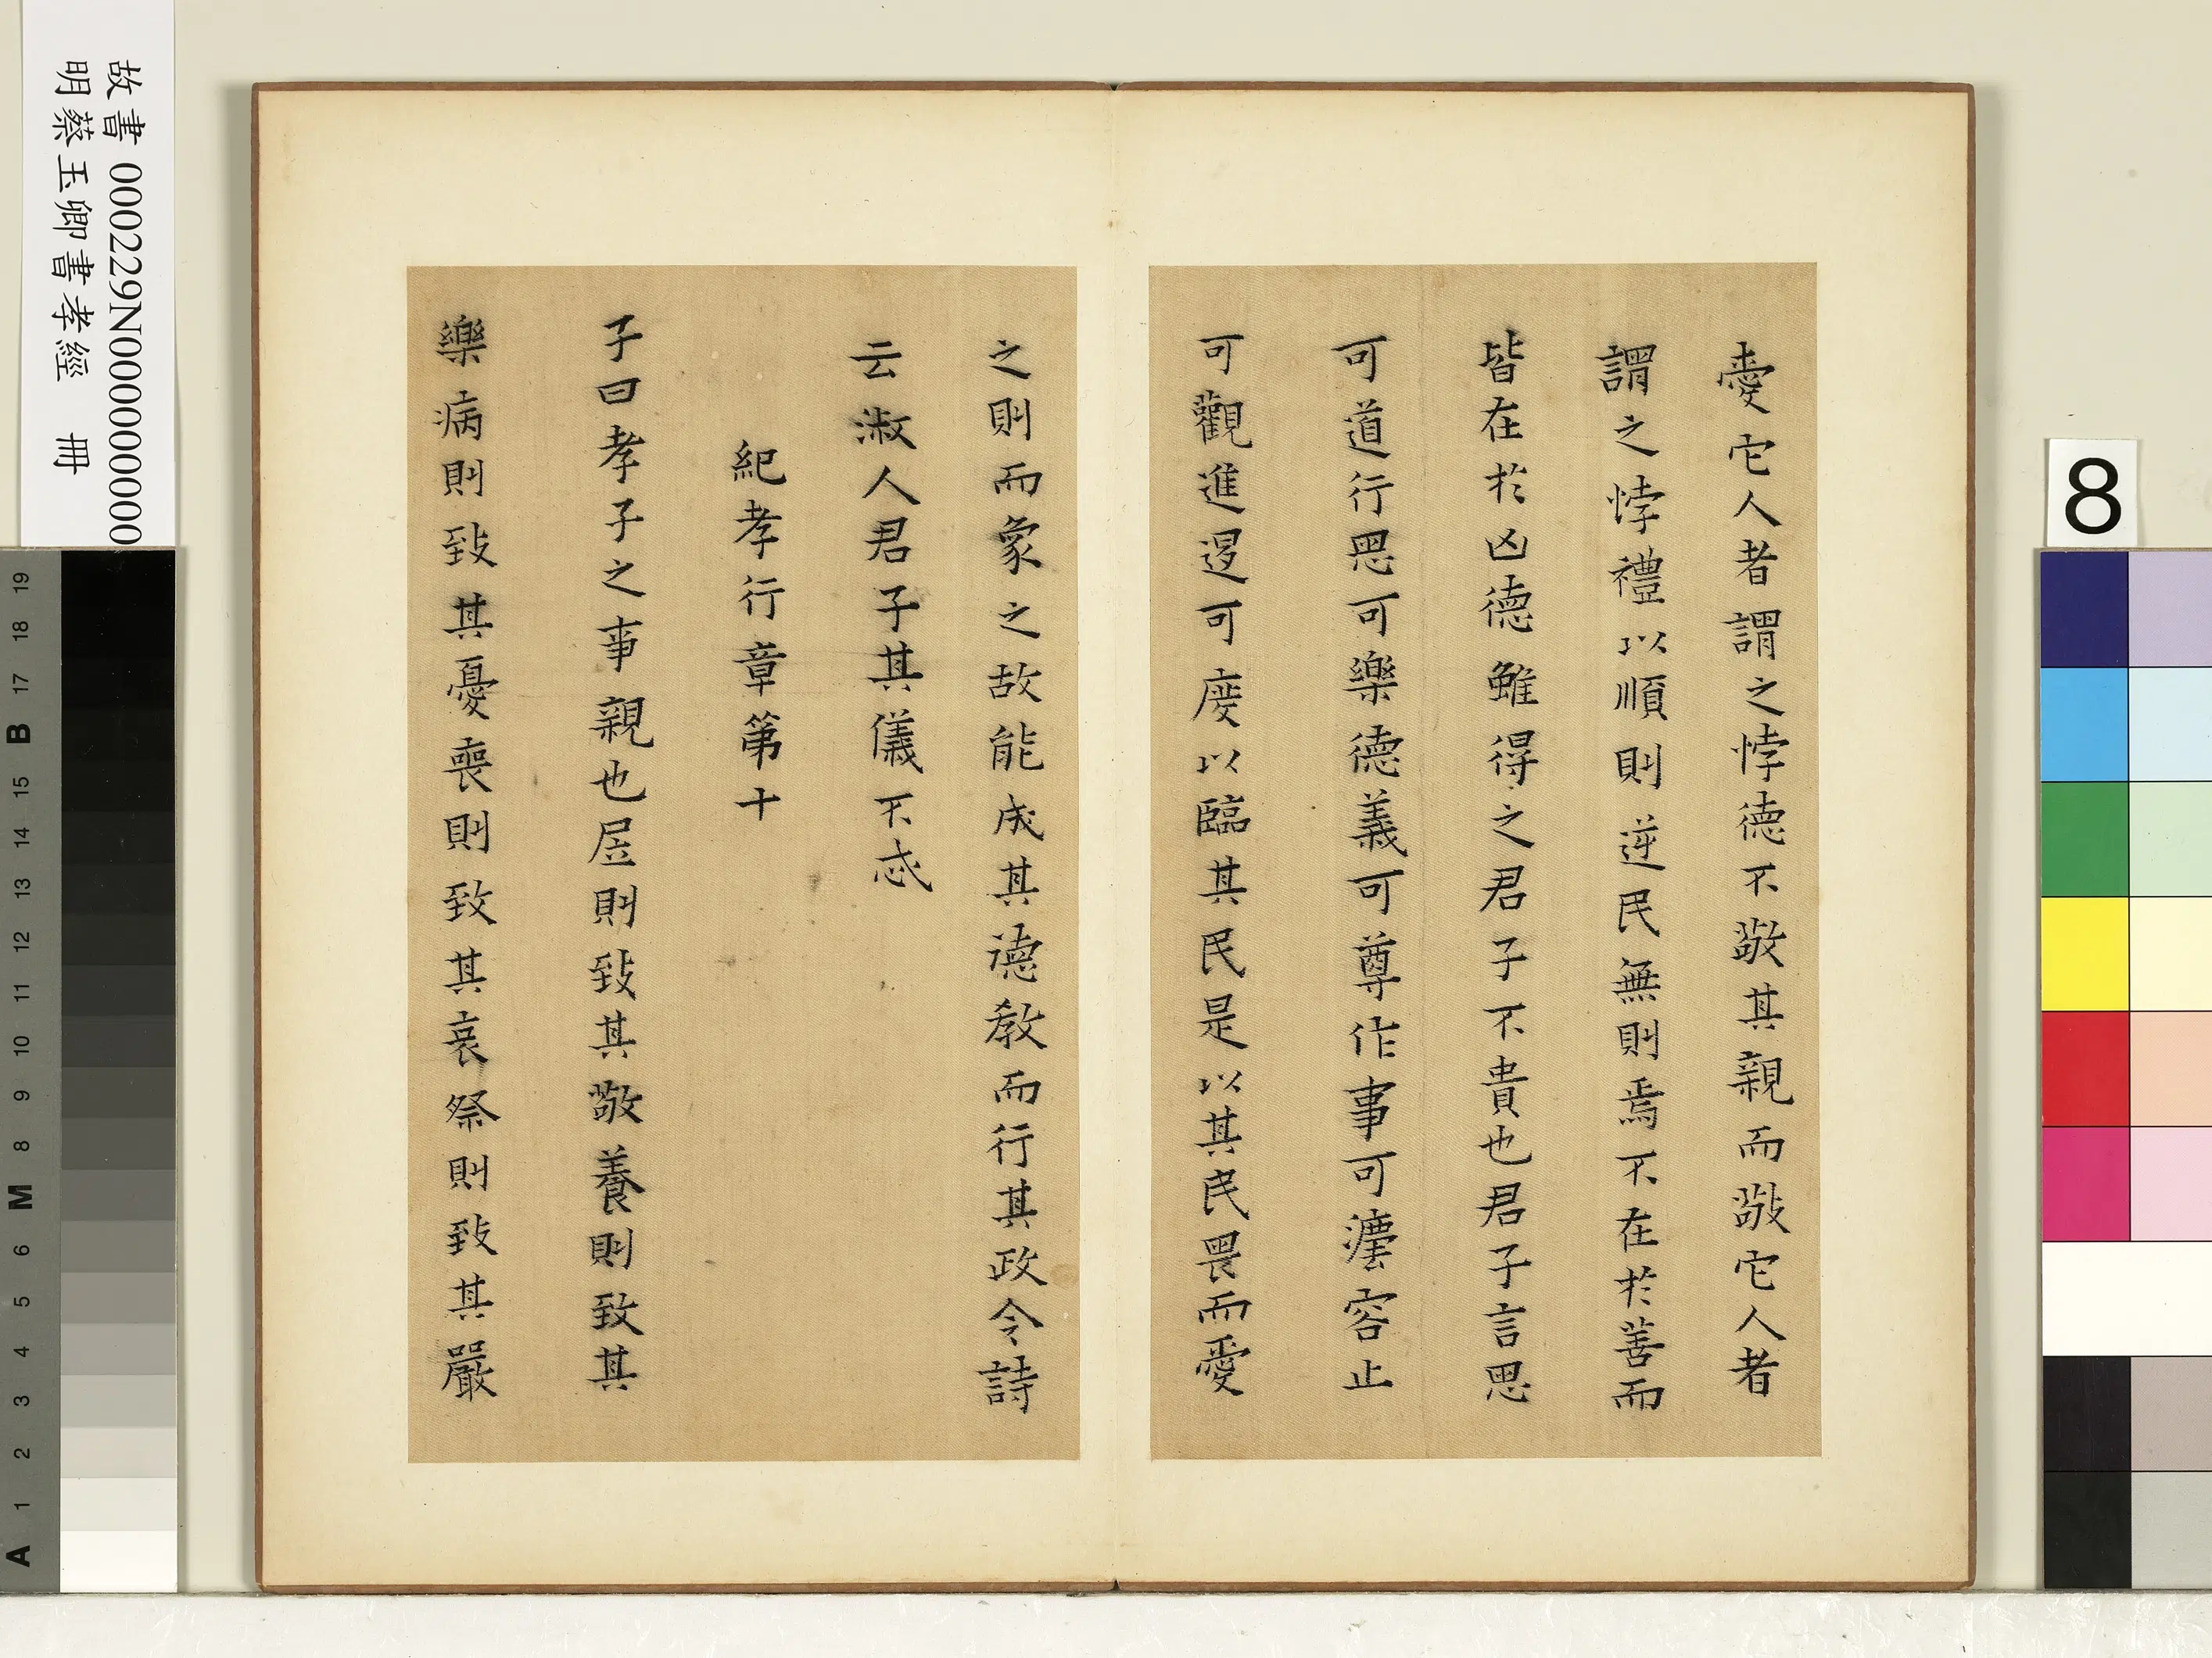 愛它人者謂之悖德不敬其親而敬它人者
謂之悖禮以順則逆民無則焉不在於善而
皆在於凶德雖得之君子不貴也君子言思
可道行思可樂德義可尊作事可灋容止
可觀進退可度以臨其民是以其民畏而愛
之則而象之故能成其德教而行其政令詩
云淑人君子其儀不忒
紀孝行章第十
子曰孝子之事親也居則致其敬養則致其
樂病則致其憂喪則致其哀祭則致其嚴
故書 000229N000000000
明蔡玉卿書孝經 冊
8
19
18
17
B
15
14
13
12
11
10
9
8
M
6
5
4
3
2
1
A